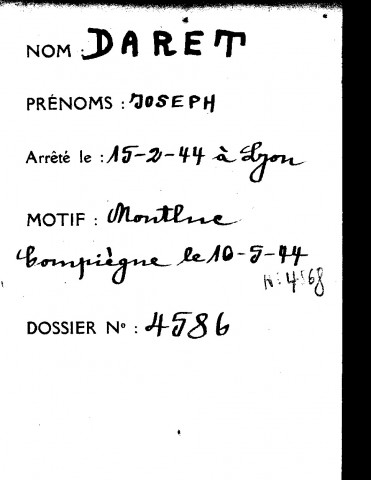 NOM : DARET
PRÉNOMS : JOSEPH
Arrêté le : 15-2-44 à Lyon
MOTIF : Montluc
Compiègne le 10-5-44
DOSSIER N° : 4586